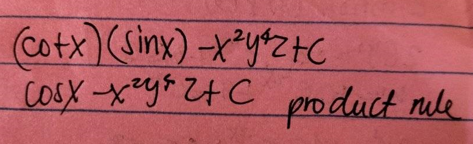 (cotx)(sinx) -x²y⁴z+C
cosx -x²y⁴ z+ C product rule